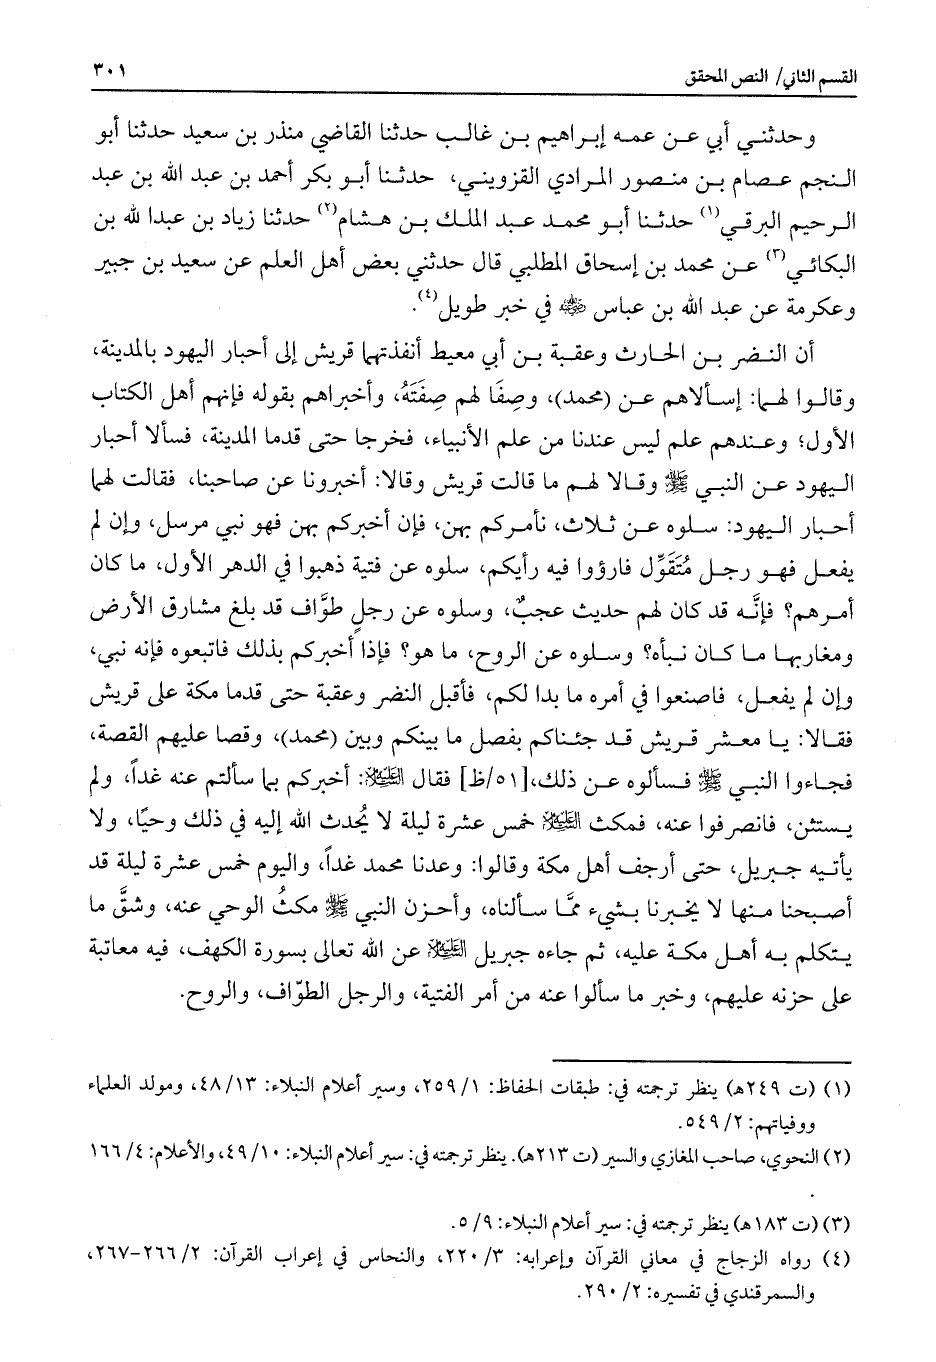 القسم الثاني/ النص المحقق
٣٠١
وحدثني أبي عن عمه إبراهيم بن غالب حدثنا القاضي منذر بن سعيد حدثنا أبو
النجم عصام بن منصور المرادي القزويني، حدثنا أبو بكر أحمد بن عبد الله بن عبد
الرحيم البرقي(١) حدثنا أبو محمد عبد الملك بن هشام(٢) حدثنا زياد بن عبدا لله بن
البكائي(٣) عن محمد بن إسحاق المطلبي قال حدثني بعض أهل العلم عن سعيد بن جبير
وعكرمة عن عبد الله بن عباس ﵁ في خبر طويل(٤).
أن النضر بن الحارث وعقبة بن أبي معيط أنفذتهما قريش إلى أحبار اليهود بالمدينة،
وقالوا لهما: إسألاهم عن (محمد)، وصِفَا لهم صِفَتَهُ، وأخبراهم بقوله فإنهم أهل الكتاب
الأول؛ وعندهم علم ليس عندنا من علم الأنبياء، فخرجا حتى قدما المدينة، فسألا أحبار
اليهود عن النبي ﷺ وقالا لهم ما قالت قريش وقالا: أخبرونا عن صاحبنا، فقالت لهما
أحبار اليهود: سلوه عن ثلاث، نأمركم بهن، فإن أخبركم بهن فهو نبي مرسل، وإن لم
يفعل فهو رجل مُتَقَوِّل فارؤوا فيه رأيكم، سلوه عن فتية ذهبوا في الدهر الأول، ما كان
أمرهم؟ فإنَّه قد كان لهم حديث عجبٌ، وسلوه عن رجلٍ طوَّاف قد بلغ مشارق الأرض
ومغاربها ما كان نبأه؟ وسلوه عن الروح، ما هو؟ فإذا أخبركم بذلك فاتبعوه فإنه نبي،
وإن لم يفعل، فاصنعوا في أمره ما بدا لكم، فأقبل النضر وعقبة حتى قدما مكة على قريش
فقالا: يا معشر قريش قد جئناكم بفصل ما بينكم وبين (محمد)، وقصا عليهم القصة،
فجاءوا النبي ﷺ فسألوه عن ذلك،[٥١/ظ] فقال ﵇: أخبركم بما سألتم عنه غداً، ولم
يستثن، فانصرفوا عنه، فمكث ﵇ خمس عشرة ليلة لا يُحدث الله إليه في ذلك وحيًا، ولا
يأتيه جبريل، حتى أرجف أهل مكة وقالوا: وعدنا محمد غداً، واليوم خمس عشرة ليلة قد
أصبحنا منها لا يخبرنا بشيء ممَّا سألناه، وأحزن النبي ﷺ مكثُ الوحي عنه، وشقَّ ما
يتكلم به أهل مكة عليه، ثم جاءه جبريل ﵇ عن الله تعالى بسورة الكهف، فيه معاتبة
على حزنه عليهم، وخبر ما سألوا عنه من أمر الفتية، والرجل الطوّاف، والروح.
(١) (ت ٢٤٩هـ) ينظر ترجمته في: طبقات الحفاظ: ١/ ٢٥٩، وسير أعلام النبلاء: ١٣/ ٤٨، ومولد العلماء
ووفياتهم: ٢/ ٥٤٩.
(٢) النحوي، صاحب المغازي والسير (ت ٢١٣هـ). ينظر ترجمته في: سير أعلام النبلاء: ١٠/ ٤٩، والأعلام: ٤/ ١٦٦
.
(٣) (ت ١٨٣هـ) ينظر ترجمته في: سير أعلام النبلاء: ٩/ ٥.
(٤) رواه الزجاج في معاني القرآن وإعرابه: ٣/ ٢٢٠، والنحاس في إعراب القرآن: ٢/ ٢٦٦-٢٦٧،
والسمرقندي في تفسيره: ٢/ ٢٩٠.